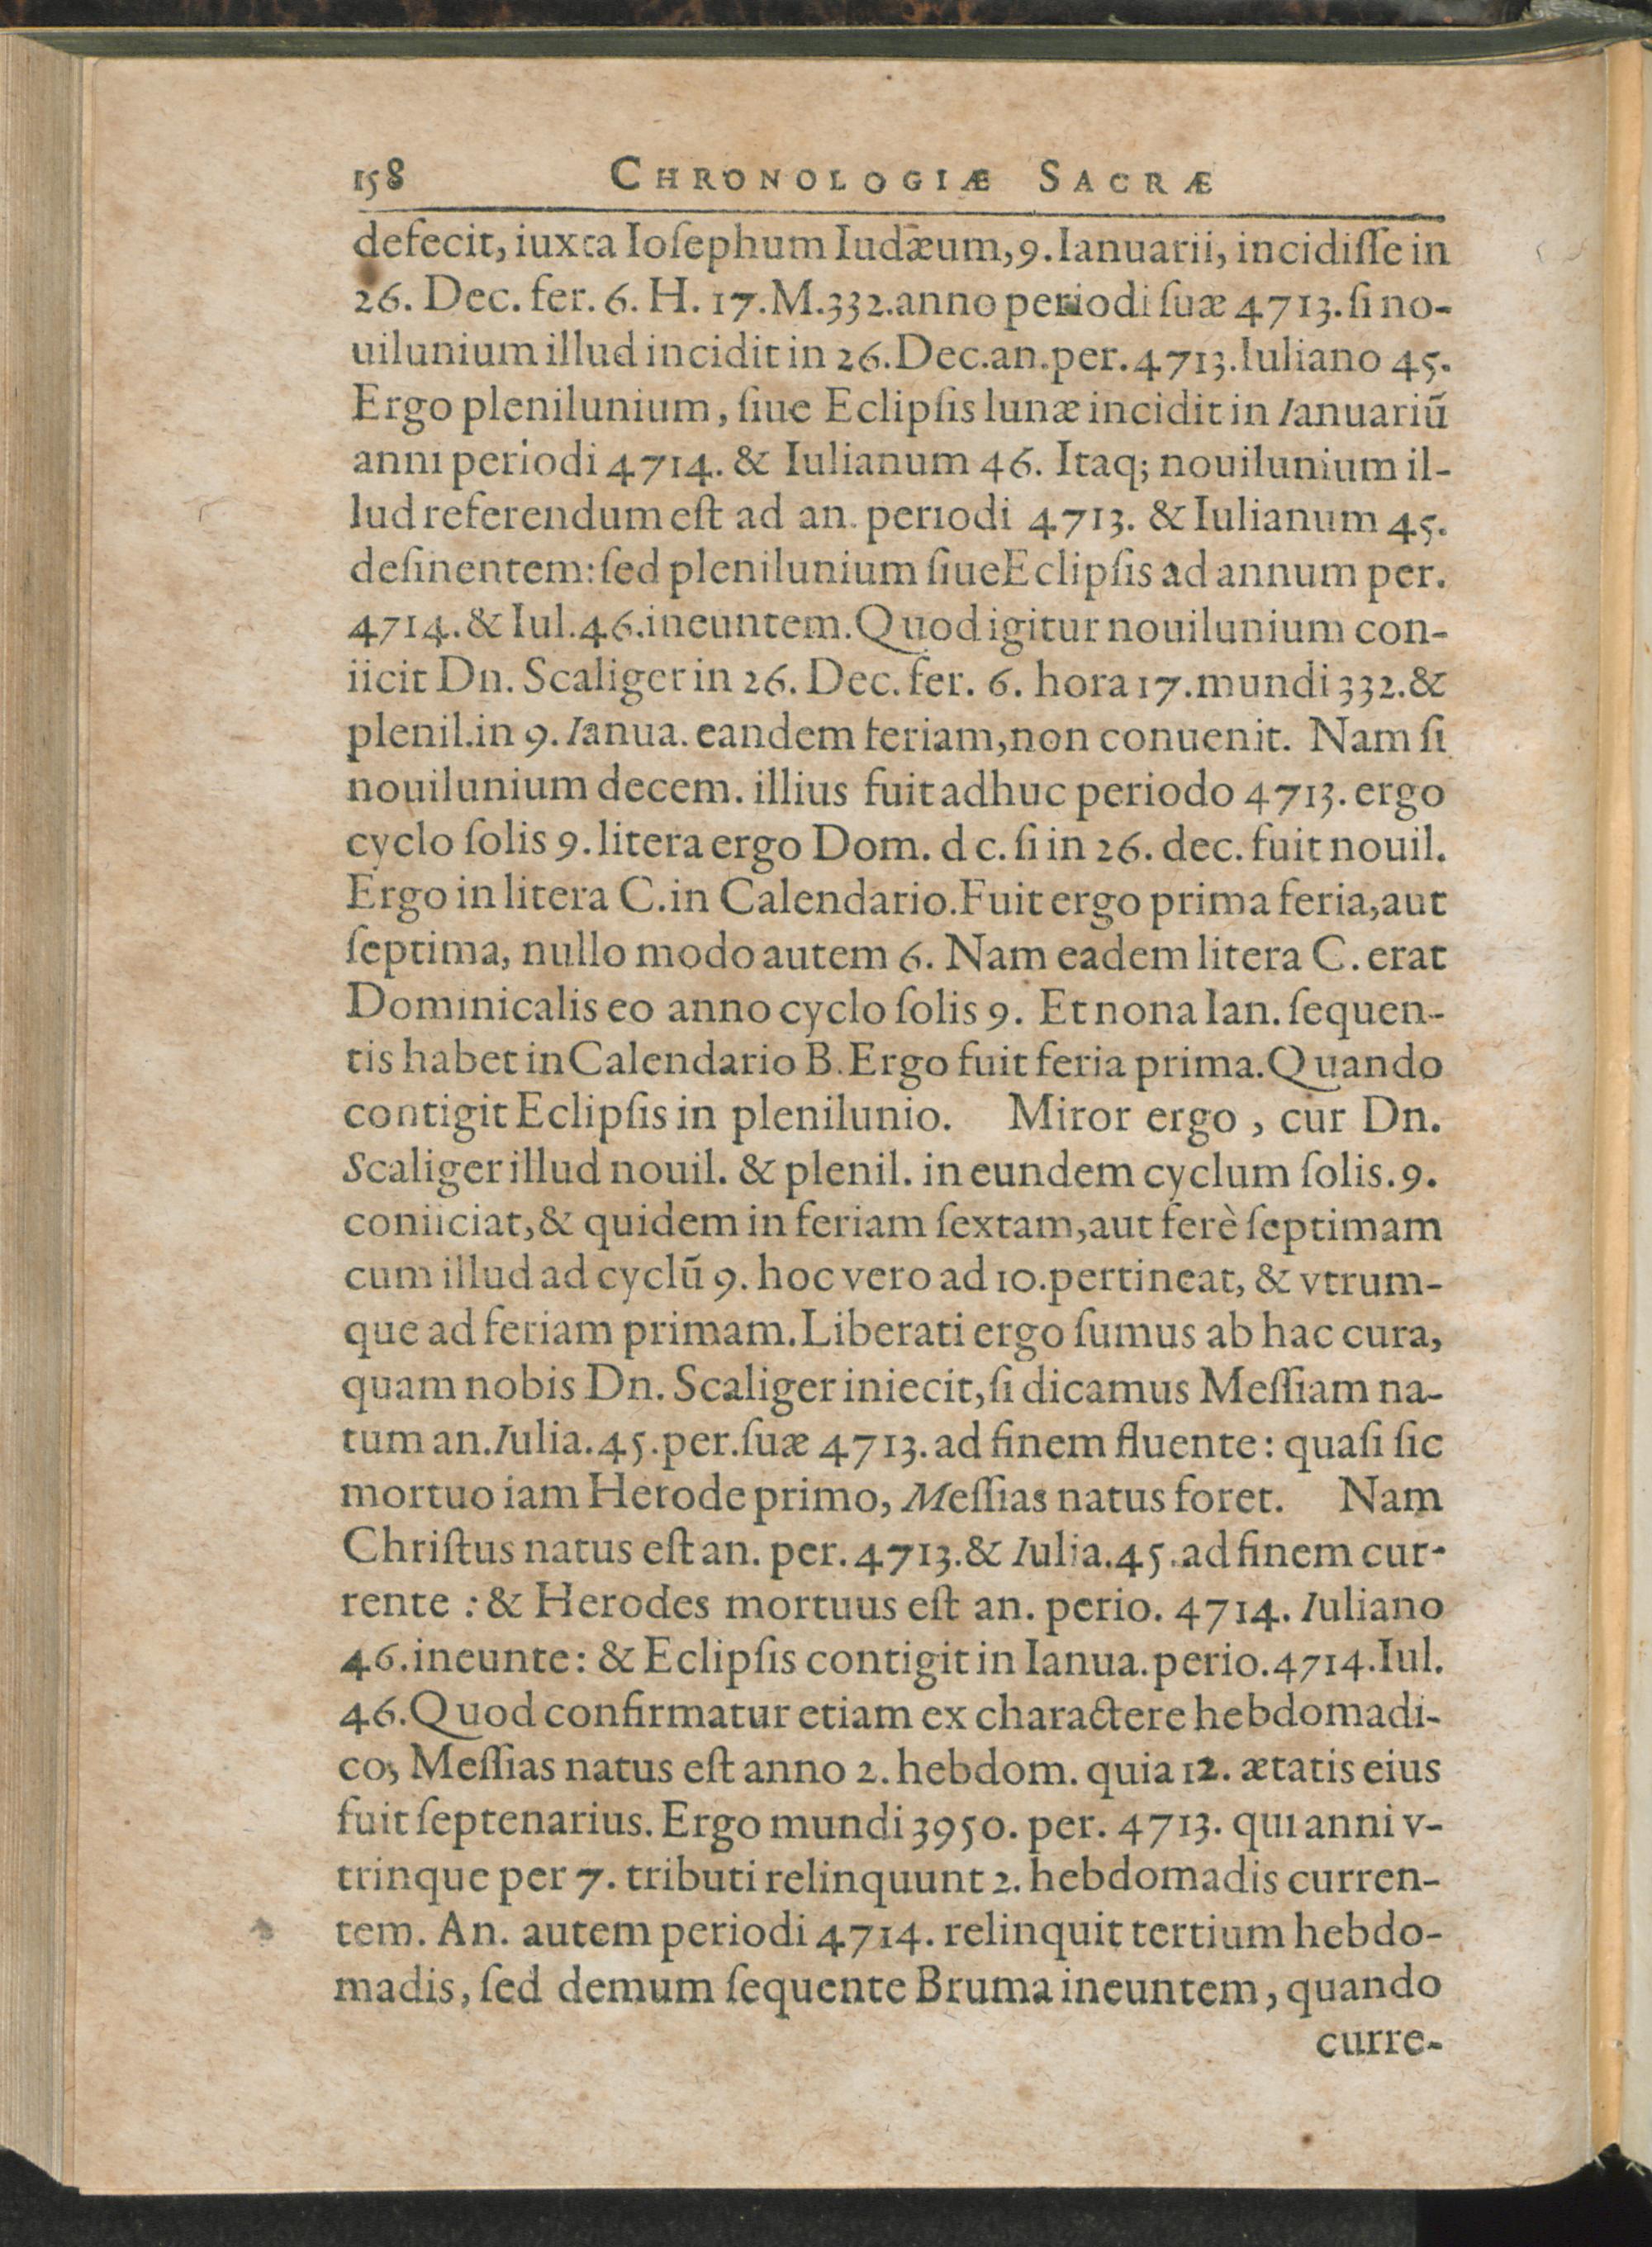 158 CHRONOLOGIÆ SACRÆ
defecit, iuxta Ioſephum Iudæum, 9. Ianuarii, incidiſſe in
26. Dec. fer. 6. H. 17. M. 332. anno periodi ſuæ 4713. ſi no-
uilunium illud incidit in 26. Dec. an. per. 4713. Iuliano 45.
Ergo plenilunium, ſiue Eclipſis lunæ incidit in Ianuariũ
anni periodi 4714. & Iulianum 46. Itaq; nouilunium il-
lud referendum eſt ad an. periodi 4713. & Iulianum 45.
deſinentem: ſed plenilunium ſiue Eclipſis ad annum per.
4714. & Iul. 46. ineuntem. Quod igitur nouilunium con-
iicit Dn. Scaliger in 26. Dec. fer. 6. hora 17. mundi 332. &
plenil. in 9. Ianua. eandem feriam, non conuenit. Nam ſi
nouilunium decem. illius fuit adhuc periodo 4713. ergo
cyclo ſolis 9. litera ergo Dom. d c. ſi in 26. dec. fuit nouil.
Ergo in litera C. in Calendario. Fuit ergo prima feria, aut
ſeptima, nullo modo autem 6. Nam eadem litera C. erat
Dominicalis eo anno cyclo ſolis 9. Et nona Ian. ſequen-
tis habet in Calendario B. Ergo fuit feria prima. Quando
contigit Eclipſis in plenilunio. Miror ergo, cur Dn.
Scaliger illud nouil. & plenil. in eundem cyclum ſolis. 9.
coniiciat, & quidem in feriam ſextam, aut ferè ſeptimam
cum illud ad cyclũ 9. hoc vero ad 10. pertineat, & vtrum-
que ad feriam primam. Liberati ergo ſumus ab hac cura,
quam nobis Dn. Scaliger iniecit, ſi dicamus Meſſiam na-
tum an. Iulia. 45. per. ſuæ 4713. ad finem fluente: quaſi ſic
mortuo iam Herode primo, Meſſias natus foret. Nam
Chriſtus natus eſt an. per. 4713. & Iulia. 45. ad finem cur-
rente: & Herodes mortuus eſt an. perio. 4714. Iuliano
46. ineunte: & Eclipſis contigit in Ianua. perio. 4714. Iul.
46. Quod confirmatur etiam ex charactere hebdomadi-
co, Meſſias natus eſt anno 2. hebdom. quia 12. ætatis eius
fuit ſeptenarius. Ergo mundi 3950. per. 4713. qui anni v-
trinque per 7. tributi relinquunt 2. hebdomadis curren-
tem. An. autem periodi 4714. relinquit tertium hebdo-
madis, ſed demum ſequente Bruma ineuntem, quando
curre-